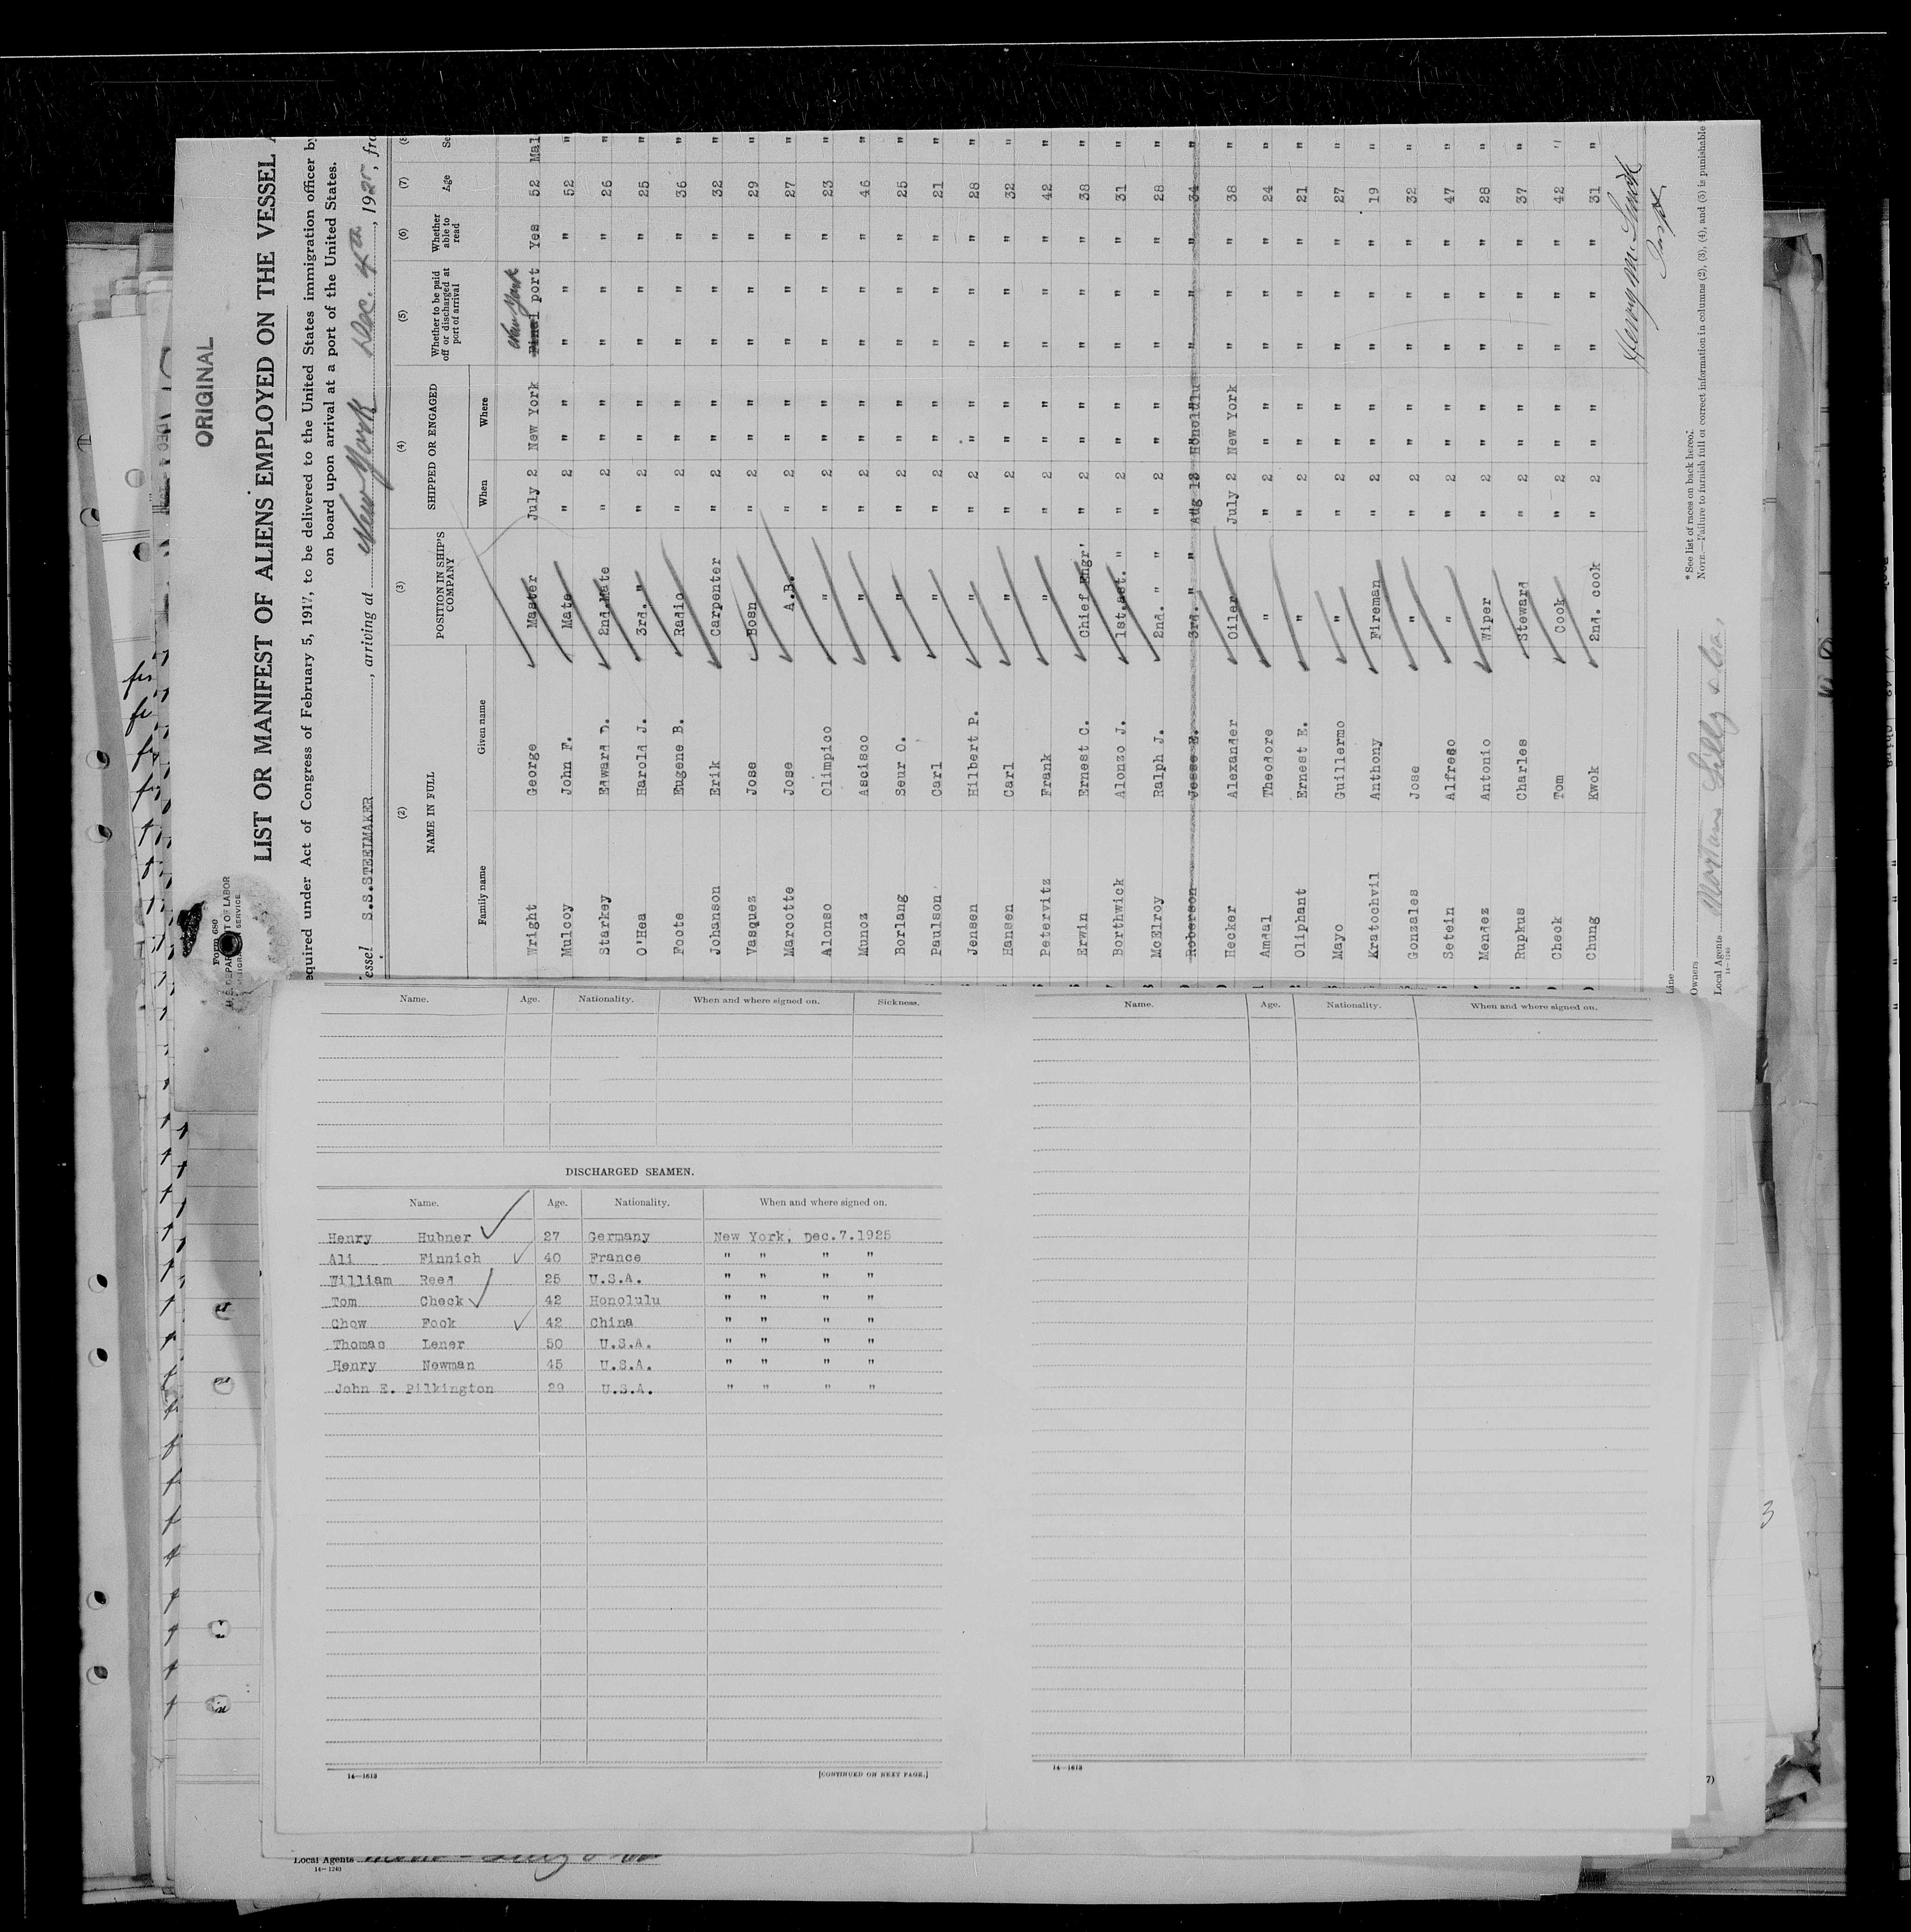 ORIGINAL
Form 680
U.S. DEPARTMENT OF LABOR
IMMIGRATION SERVICE
LIST OR MANIFEST OF ALIENS EMPLOYED ON THE VESSEL
equired under Act of Congress of February 5, 1917, to be delivered to the United States immigration officer by
on board upon arrival at a port of the United States.
essel S.S.STEELMAKER, arriving at New York Dec. 4th, 1925, fro
(2) (3) (4) (5) (6) (7) (8
NAME IN FULL POSITION IN SHIP'S COMPANY SHIPPED OR ENGAGED Whether to be paid off or discharged at port of arrival Whether able to read Age Se
Family name Given name When Where
New York
Wright George Master July 2 New York Final port Yes 52 Mal
Mulcoy John F. Mate " 2 " " " " " 52 "
Starkey Edward D. 2nd.Mate " 2 " " " " " 26 "
O'Hea Harold J. 3rd. " " 2 " " " " " 25 "
Foote Eugene B. Radio " 2 " " " " " 36 "
Johanson Erik Carpenter " 2 " " " " " 32 "
Vasquez Jose Bosn " 2 " " " " " 29 "
Marcotte Jose A.B. " 2 " " " " " 27 "
Alonso Olimpico " " 2 " " " " " 23 "
Munoz Ascisco " " 2 " " " " " 46 "
Borlang Seur O. " " 2 " " " " " 25 "
Paulson Carl " " 2 " " " " " 21 "
Jensen Hilbert P. " " 2 " " " " " 28 "
Hansen Carl " " 2 " " " " " 32 "
Petervitz Frank " " 2 " " " " " 42 "
Erwin Ernest C. Chief Engr' " 2 " " " " " 38 "
Borthwick Alonzo J. 1st.ast. " " 2 " " " " " 31 "
McElroy Ralph J. 2nd. " " " 2 " " " " " 28 "
Roberson Jesse E. 3rd. " " Aug 13 Honolulu " " " 34 "
Hecker Alexander Oiler July 2 New York " " " 38 "
Amdal Theodore " " 2 " " " " " 24 "
Oliphant Ernest E. " " 2 " " " " " 21 "
Mayo Guillermo " " 2 " " " " " 27 "
Kratochvil Anthony Fireman " 2 " " " " " 19 "
Gonzales Jose " " 2 " " " " " 32 "
Setein Alfredo " " 2 " " " " " 47 "
Mendez Antonio Wiper " 2 " " " " " 28 "
Rupkus Charles Steward " 2 " " " " " 37 "
Check Tom Cook " 2 " " " " " 42 "
Chung Kwok 2nd. cook " 2 " " " " " 31 "
Line
* See list of races on back hereof.
Owners
NOTE.—Failure to furnish full or correct information in columns (2), (3), (4), and (5) is punishable
Local Agents
14—1240
Name. Age. Nationality. When and where signed on. Sickness.
DISCHARGED SEAMEN.
Name. Age. Nationality. When and where signed on.
Henry Hubner 27 Germany New York, Dec.7.1925
Ali Finnich 40 France " " " "
William Reed 25 U.S.A. " " " "
Tom Check 42 Honolulu " " " "
Chow Fook 42 China " " " "
Thomas Lener 50 U.S.A. " " " "
Henry Newman 45 U.S.A. " " " "
John E. Pilkington 29 U.S.A. " " " "
14—1613 [CONTINUED ON NEXT PAGE.]
Name. Age. Nationality. When and where signed on.
14—1613
3
7)
Local Agents
14—1240